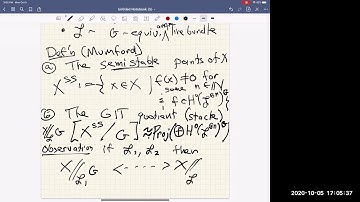 Untitled Notebook (5)
• ℒ ~ G-equiv. ample line bundle
Def'n (Mumford)
ⓐ The semistable points of X
X^{SS} := { x ∈ X | f(x) ≠ 0 for
some n ∈ ℕ
f ∈ H⁰(ℒ^{⊗n})^G
ⓑ The GIT quotient (stack)
X//_ℒ G [X^{SS}/G] ≈ Proj(⊕ H⁰(ℒ^{⊗n})^G)
Observation if ℒ₁, ℒ₂ then
X//_{ℒ₁} G <----> X//_ℒ
2020-10-05 17:05:37